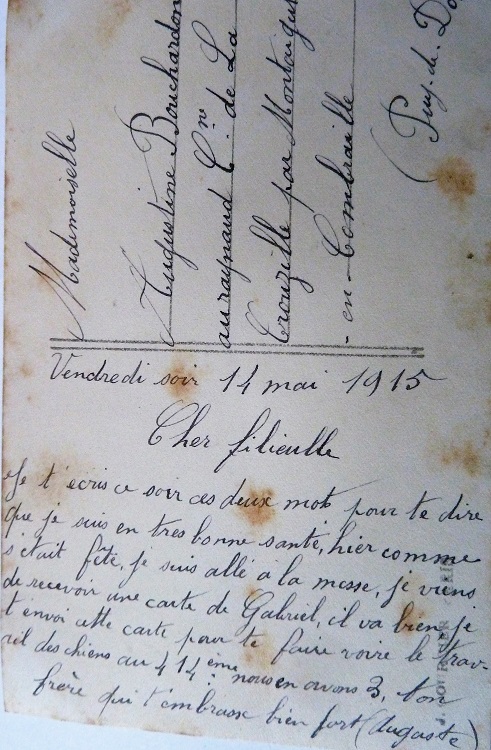 Mademoiselle
Augustine Bouchardon
au raynaud Cne de La
Crouzille par Montaigut
- en - Combraille
(Puy. de. Do
Vendredi soir 14 mai 1915
Cher filieulle
Je t'écris ce soir ces deux mots pour te dire
que je suis en tres bonne santé, hier comme
s'était fête, je suis allé a la messe, je viens
de recevoir une carte de Gabriel, il va bien, je
t'envoi cette carte pour te faire voire le trav-
ail des chiens au 414ème nous en avons 3, ton
frère qui t'embrasse bien fort (Auguste)